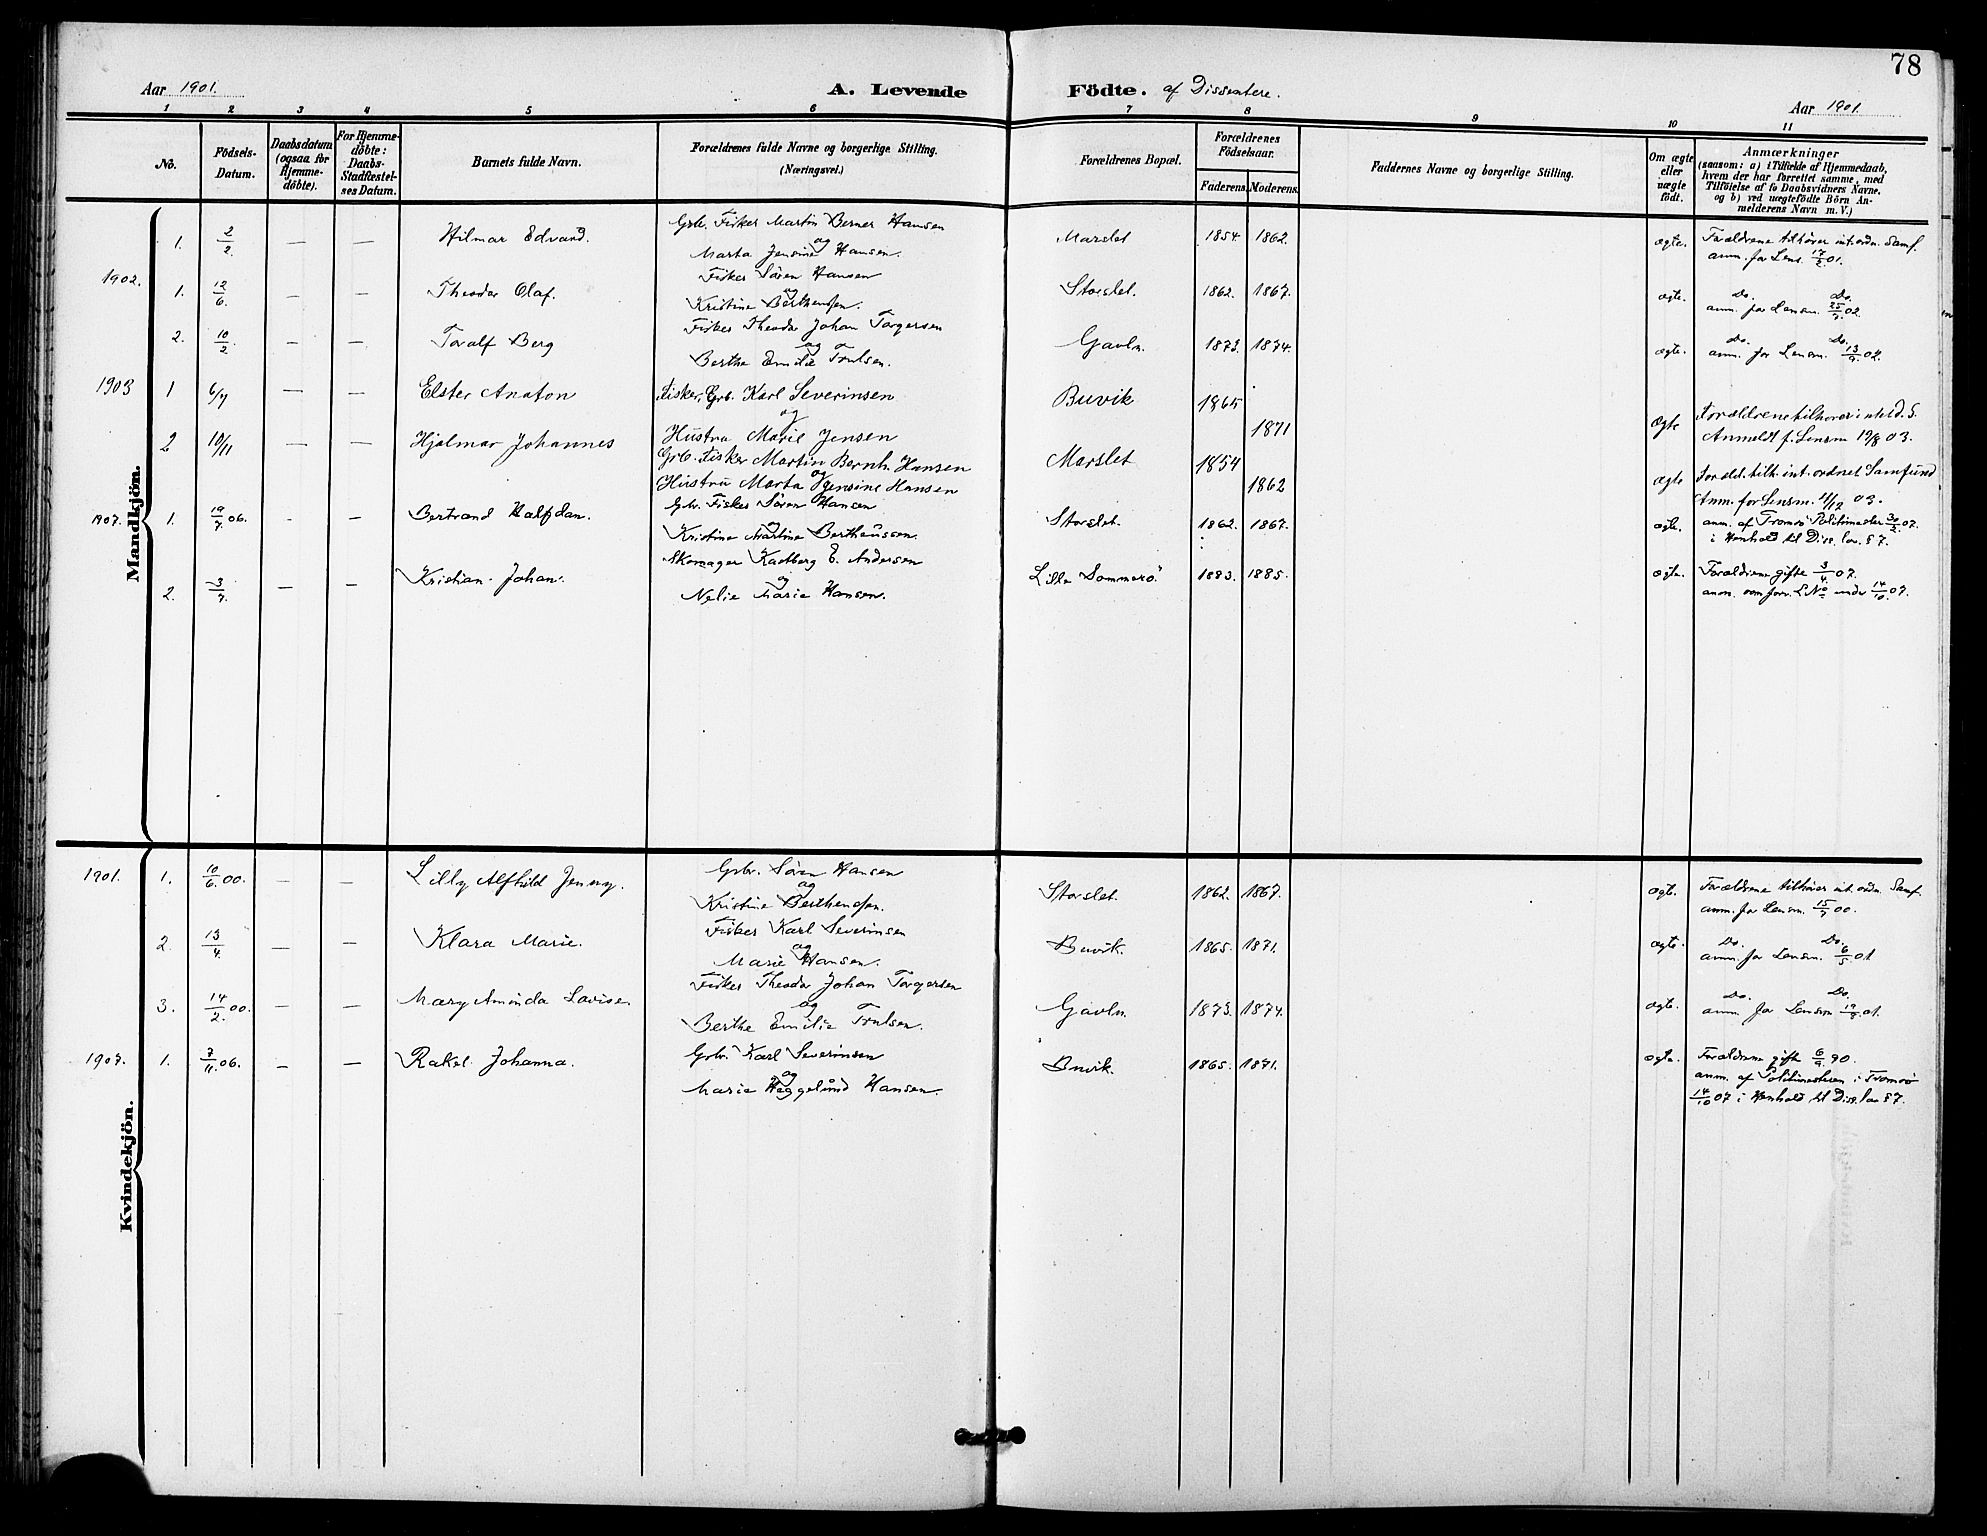 78
Aar 1901.
A. Levende Födte. af Dissentere.
Aar 1901.
1 2 3 4 5 6 7 8 9 10 11
No.
Födsels-
Datum.
Daabsdatum
(ogsaa for
Hjemme-
döbte).
For Hjemme-
döbte:
Daabs-
Stadfæstel-
ses Datum.
Barnets fulde Navn.
Forældrenes fulde Navne og borgerlige Stilling.
(Næringsvei.)
Forældrenes Bopæl.
Forældrenes
Födselsaar.
Faderens. Moderens.
Faddernes Navne og borgerlige Stilling.
Om ægte
eller
uægte
födt.
Anmærkninger
(saasom: a) i Tilfælde af Hjemmedaab,
hvem der har forrettet samme, med
Tilföielse af to Daabsvidners Navne,
og b) ved uægtefödte Börn An-
melderens Navn m. V.)
Mandkjön.
1. 2/2. — — Hilmar Edvard.
Grb. Fisker Martin Berner Hansen
og
Marta Jensine Hansen.
Marslet 1854. 1862. ægte.
Forældrene tilhører int. ordn. Samf.
anm. for Lens. 17/2 01.
1902.
1. 12/6. — — Theodor Olaf.
Fisker Sören Hansen
og
Kristine Berthensen.
Storslet. 1862. 1867. ægte.
Do. Do.
anm. for Lensm. 25/7 02.
2. 10/2. — — Toralf Berg
Fisker Theodor Johan Torgersen
og
Berthe Emilie Trulsen.
Gavln. 1873. 1874. ægte.
Do. Do.
anm. for Lensm. 13/9 02.
1903
1 6/7 — — Elster Anaton
Fisker, Grb. Karl Severinsen
og
Hustru Marie Jensen
Buvik 1865 1871 Ægte
Forældrene tilhører int. id. S.
Anmeldt f. Lensm 19/8 03.
2 10/11 — — Hjalmar Johannes
Grb. Fisker Martin Bernh. Hansen
og
Hustru Marta Jensine Hansen
Marslet 1854 1862 Ægte
Foræld. tilh. int. ordnet Samfund
Anm. for Lensm. 11/12 03.
1907.
1. 19/7 06. - — Bertrand Halfdan.
Grb. Fisker Sören Hansen
og
Kristine Martine Bertheussen.
Storslet. 1862. 1867. ægte.
anm. af Tromsö Politimester 30/2 07.
i Henhold til Diss. lov. § 7.
2. 3/7. — — Kristian Johan.
Skomager Kadberg E. Andersen
og
Nelie Marie Hansen.
Lille Sommerö 1883. 1885. ægte.
Forældrene gifte 3/4 07.
anm. som forr. LNo under 14/10 07.
Kvindekjön.
1901.
1. 10/6 00. — — Lilly Alfhild Jenny.
Grbr. Sören Hansen
og
Kristine Berthensen.
Storslet. 1862. 1867. ægte.
Forældrene tilhører int. ordn. Samf.
anm. for Lensm. 15/7 00.
2. 13/4. — — Klara Marie.
Fisker Karl Severinsen
og
Marie Hansen.
Buvik. 1865. 1871. ægte.
Do. Do.
anm. for Lensm. 6/5 01.
3. 14/2 00. — — Mary Aminda Lovise.
Fisker Theodor Johan Torgersen
og
Berthe Emilie Trulsen.
Gavln. 1873. 1874. ægte.
Do. Do.
anm. for Lensm 19/8 01.
1907.
1. 7/11 06. — — Rakel Johanna.
Grbr. Karl Severinsen
og
Marie Hæggelund Hansen.
Buvik. 1865. 1871. ægte.
Forældrene gifte 6/9 90.
anm. af Politimesteren i Tromsö
14/10 07 i Henhold til Diss. lov § 7.